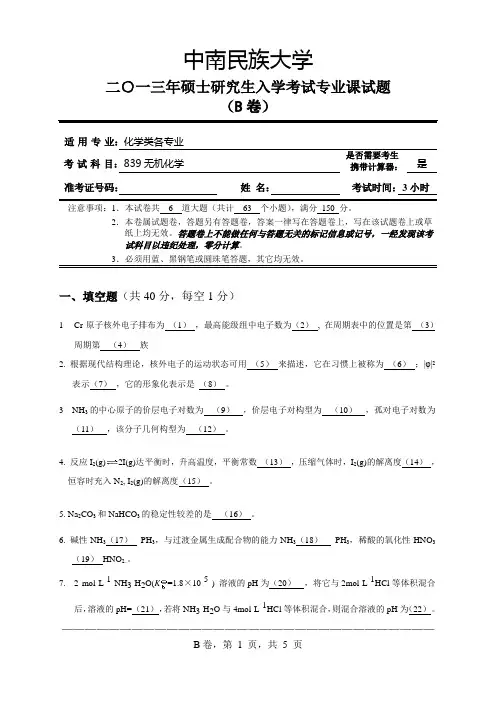 中南民族大学
二〇一三年硕士研究生入学考试专业课试题
（B卷）
适用专业：化学类各专业
考试科目：839无机化学 是否需要考生携带计算器： 是
准考证号码： 姓 名： 考试时间：3小时
注意事项：1．本试卷共 6 道大题（共计 63 个小题），满分 150 分。
2．本卷属试题卷，答题另有答题卷，答案一律写在答题卷上，写在该试题卷上或草
纸上均无效。答题卷上不能做任何与答题无关的标记信息或记号，一经发现该考
试科目以违纪处理，零分计算。
3．必须用蓝、黑钢笔或圆珠笔答题，其它均无效。
一、填空题（共40分，每空1分）
1 Cr原子核外电子排布为 （1） ，最高能级组中电子数为（2） , 在周期表中的位置是第 （3）
周期第 （4） 族
2. 根据现代结构理论，核外电子的运动状态可用 （5） 来描述，它在习惯上被称为 （6） ；|φ|²
表示（7） ，它的形象化表示是 （8） 。
3 NH₃的中心原子的价层电子对数为 （9） ，价层电子对构型为 （10） ，孤对电子对数为
（11） ，该分子几何构型为 （12） 。
4. 反应I₂(g)⇌2I(g)达平衡时，升高温度，平衡常数 （13） ，压缩气体时，I₂(g)的解离度（14） ，
恒容时充入N₂, I₂(g)的解离度（15） 。
5. Na₂CO₃和NaHCO₃的稳定性较差的是 （16） 。
6. 碱性NH₃（17） PH₃，与过渡金属生成配合物的能力NH₃（18） PH₃，稀酸的氧化性HNO₃
（19） HNO₂。
7. 2 mol L⁻¹ NH₃ H₂O(K=1.8×10⁻⁵ ) 溶液的pH为（20） ，将它与2mol L⁻¹HCl等体积混合
后，溶液的pH=（21），若将NH₃ H₂O与4mol L⁻¹HCl等体积混合，则混合溶液的pH为（22）。
B卷，第 1 页，共 5 页